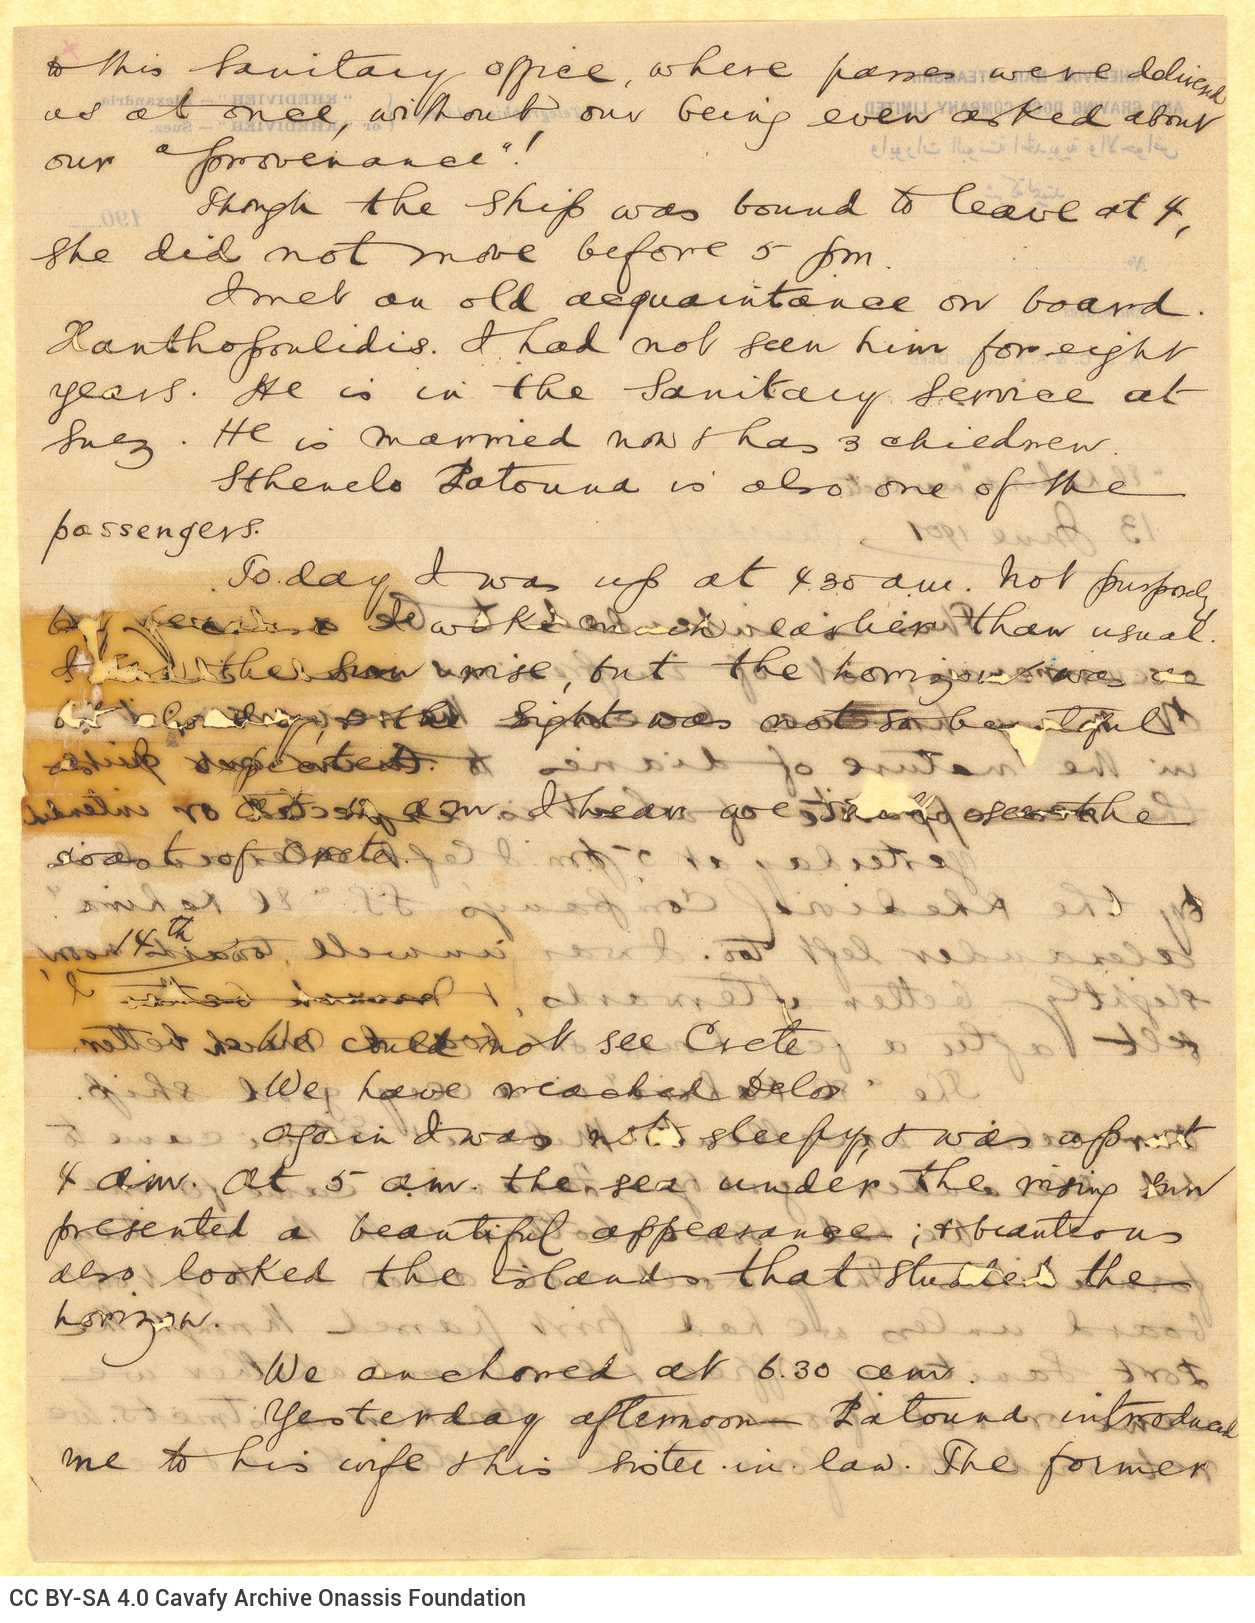 to this Sanitary office, where passes were delivered
us at once, without our being even asked about
our "provenance"!
Though the ship was bound to leave at 4,
she did not move before 5 pm.
I met an old acquaintance on board.
Xanthopoulidis. I had not seen him for eight
years. He is in the Sanitary Service at
Suez. He is married now & has 3 children.
Sthenelo Patouna is also one of the
passengers.
To-day I was up at 4.30 am. Not purposely,
I woke much earlier than usual.
I the sun rise, but the horizon was a
bit cloudy, & the sight was not so beautiful
At am. I hear we the
coast of Crete.
14th
We could not see Crete
We have reached Delos
Again I was not sleepy, & was up at
4 a.m. At 5 a.m. the sea under the rising sun
presented a beautiful appearance; & beauteous
also looked the islands that studded the
horizon.
We anchored at 6.30 am.
Yesterday afternoon Patouna introduced
me to his wife & his sister-in-law. The former
CC BY-SA 4.0 Cavafy Archive Onassis Foundation